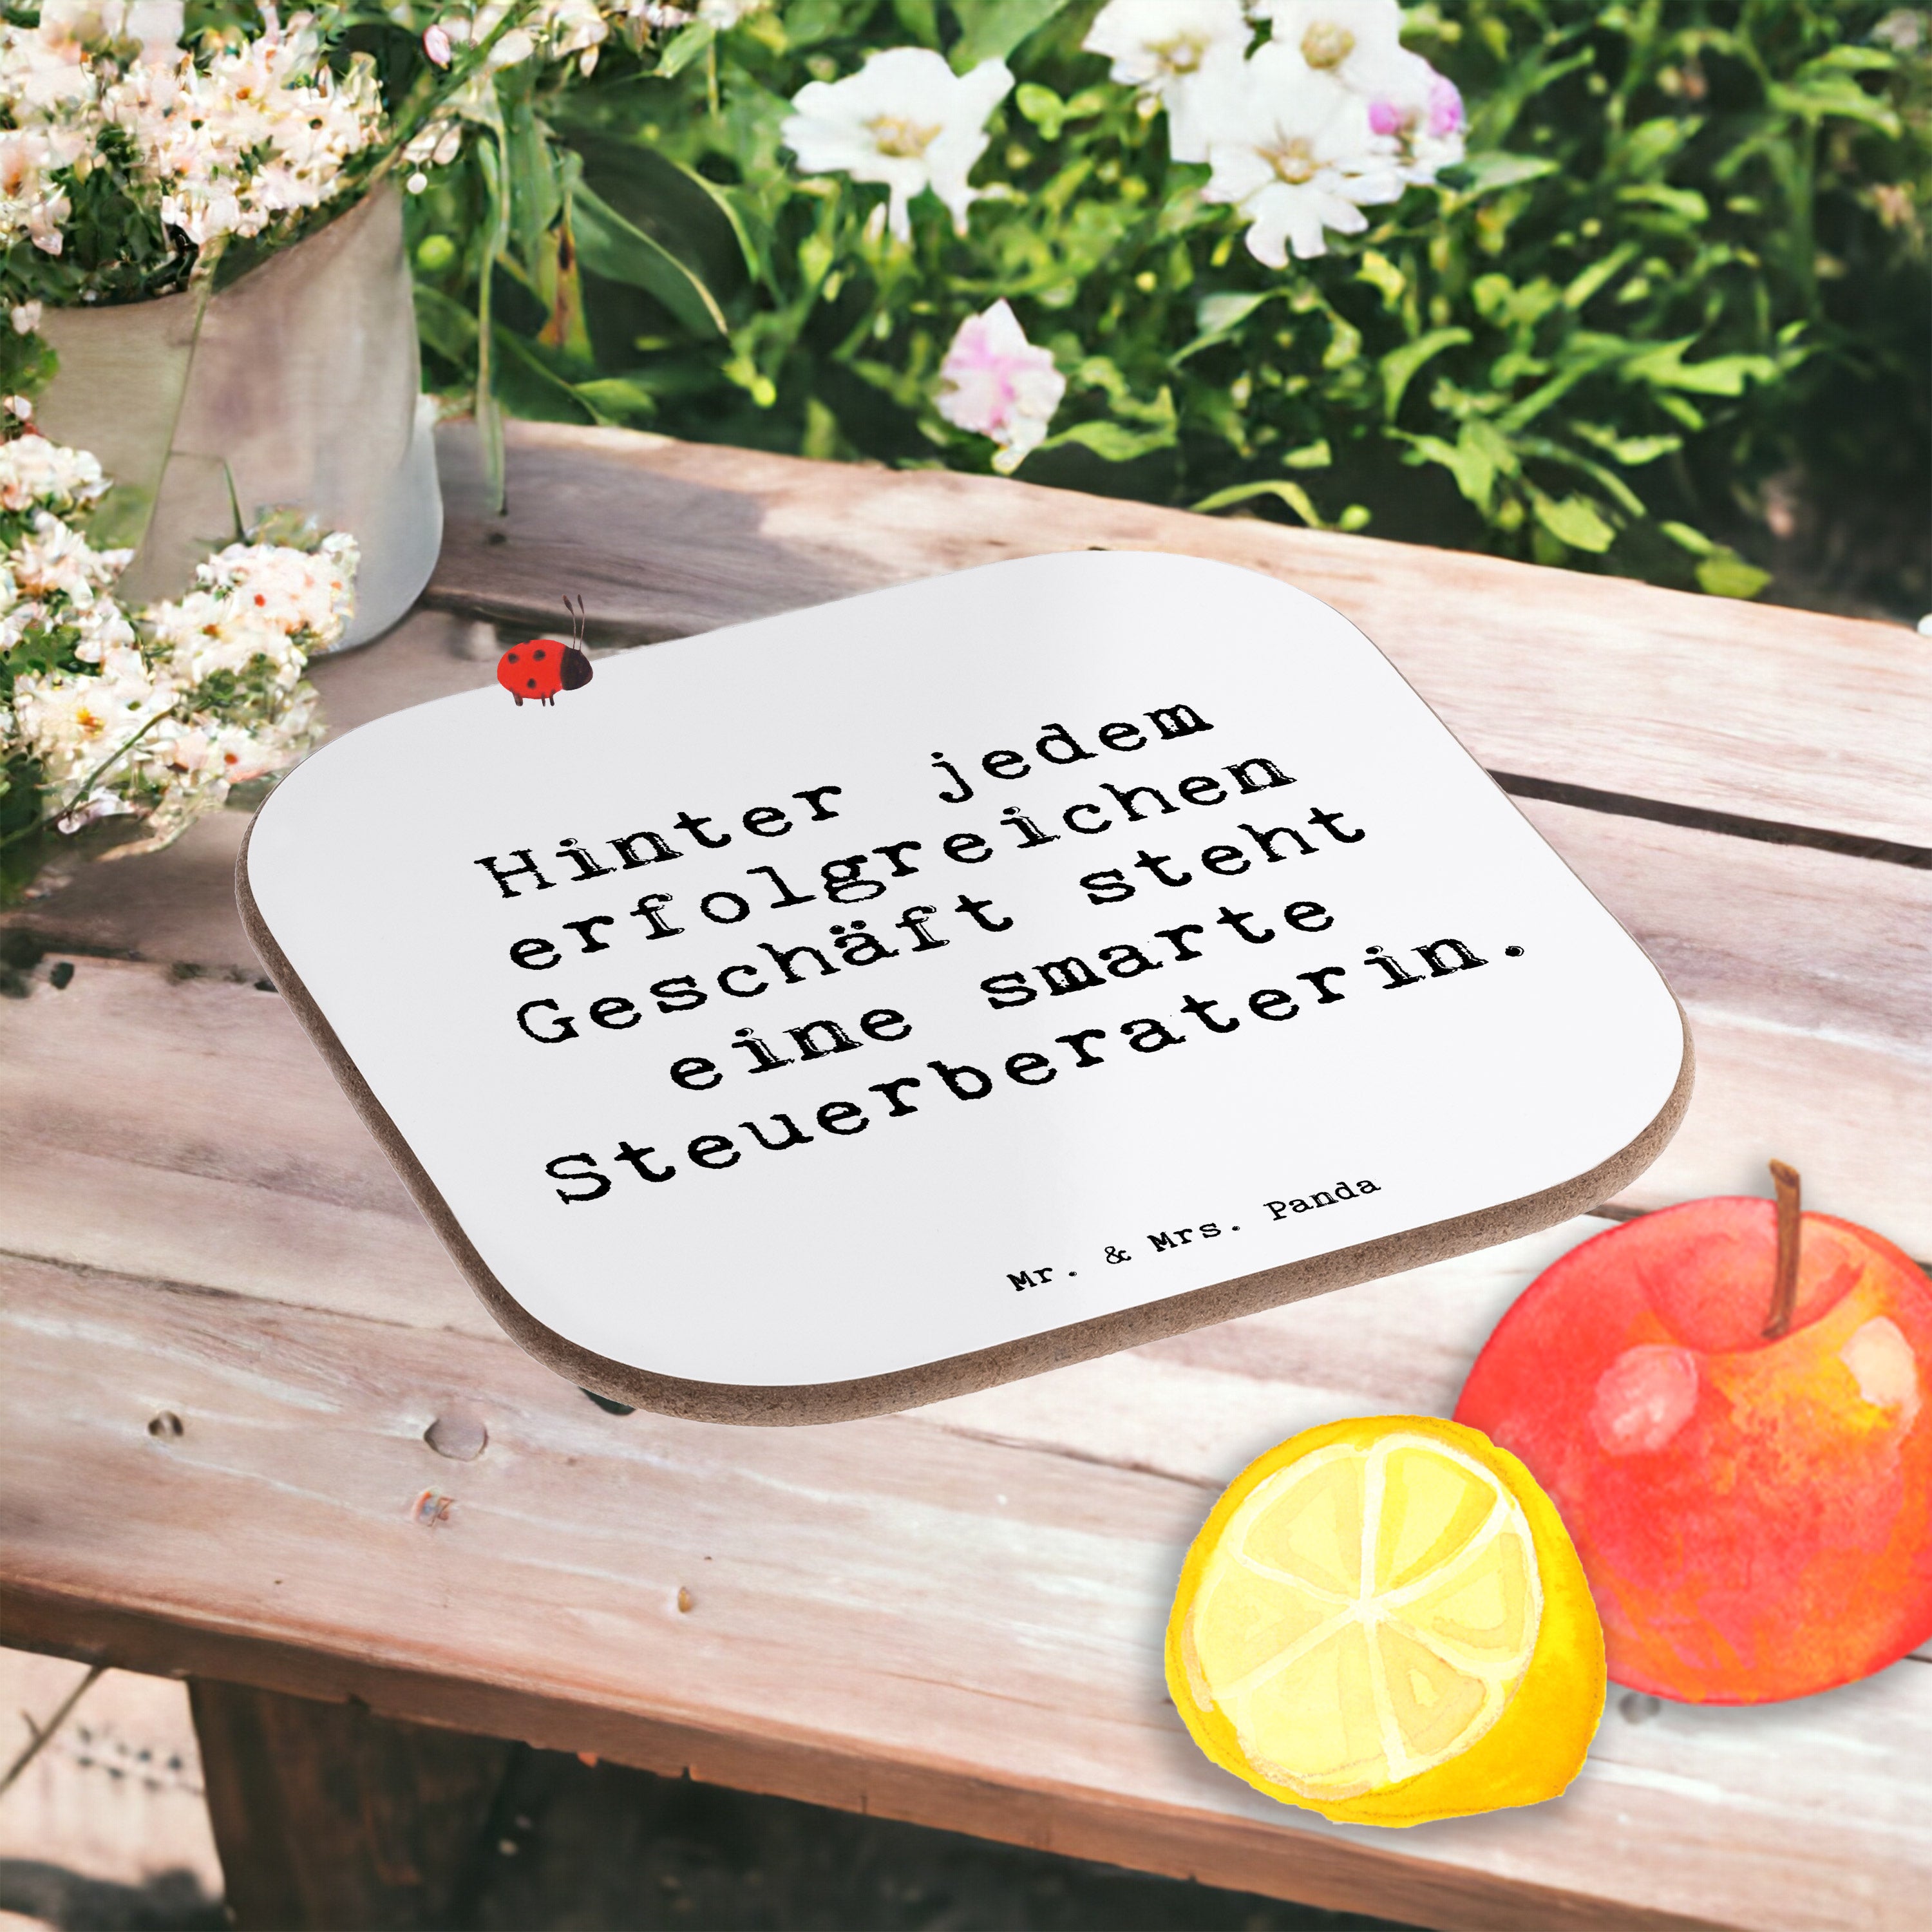 Hinter jedem
erfolgreichen
Geschäft steht
eine smarte
Steuerberaterin.
Mr. & Mrs. Panda